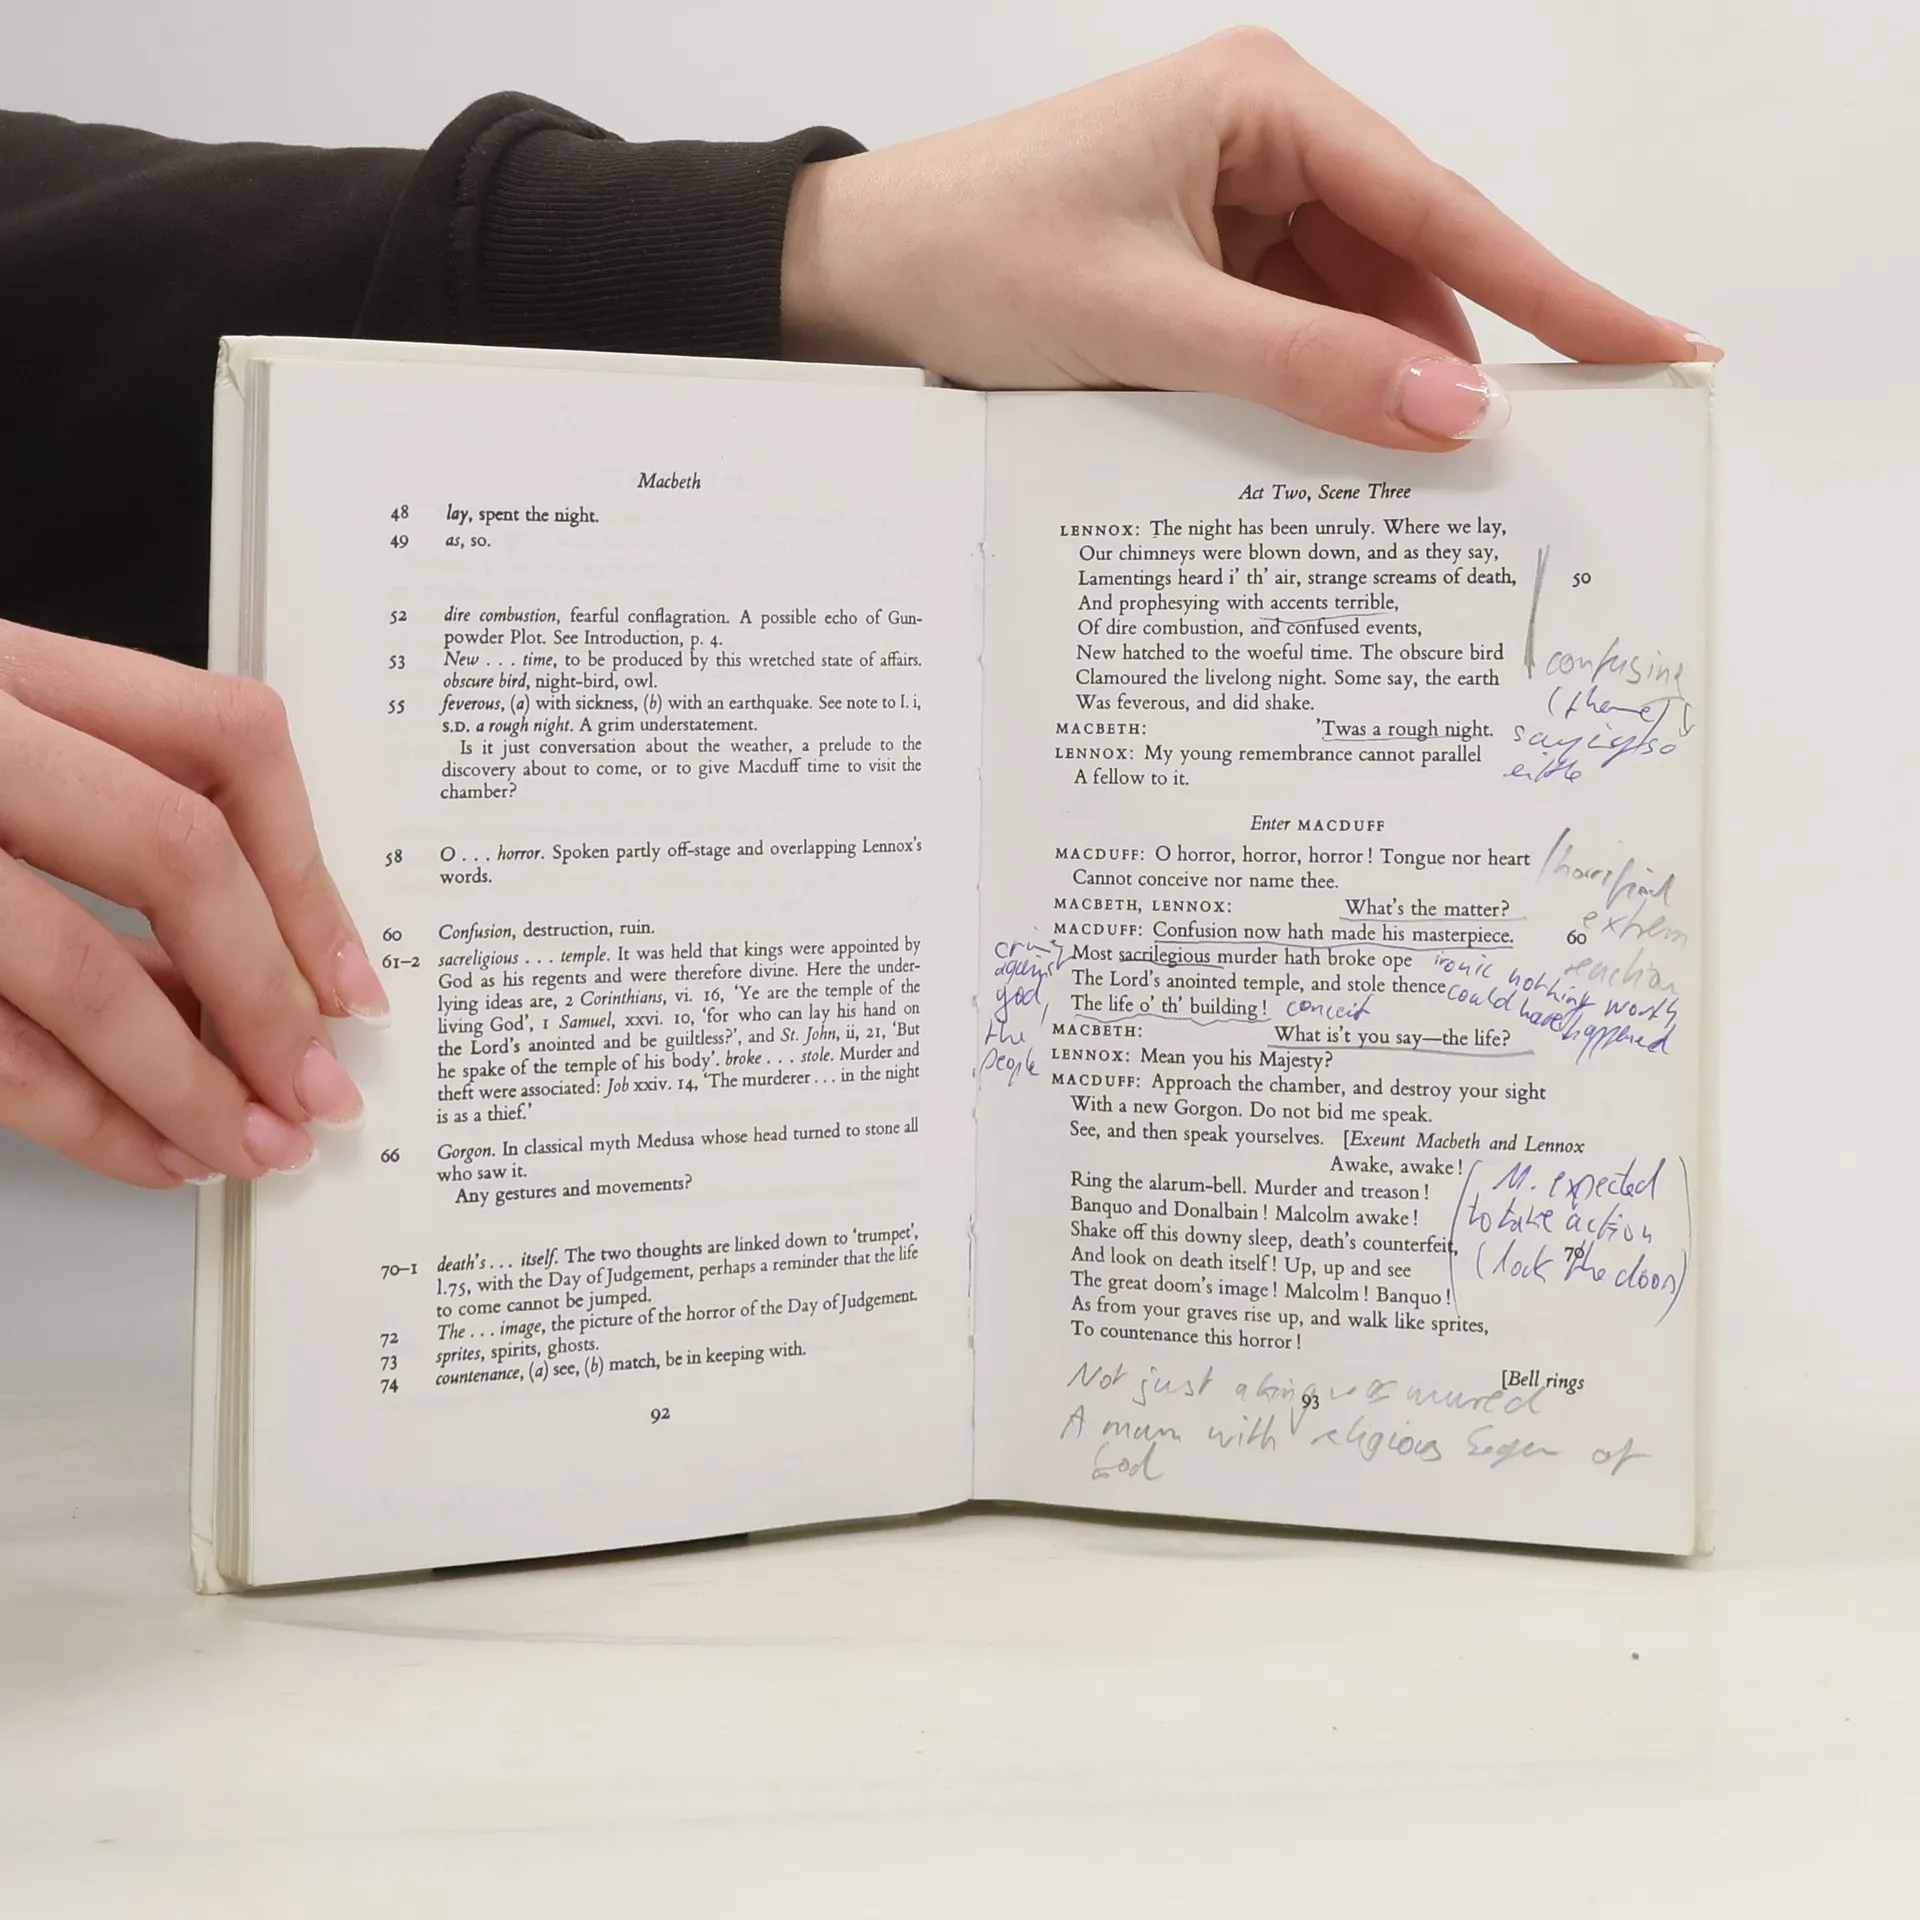 Macbeth
48 lay, spent the night.
49 as, so.
52 dire combustion, fearful conflagration. A possible echo of Gun-
powder Plot. See Introduction, p. 4.
53 New . . . time, to be produced by this wretched state of affairs.
obscure bird, night-bird, owl.
55 feverous, (a) with sickness, (b) with an earthquake. See note to I. i,
S.D. a rough night. A grim understatement.
Is it just conversation about the weather, a prelude to the
discovery about to come, or to give Macduff time to visit the
chamber?
58 O . . . horror. Spoken partly off-stage and overlapping Lennox's
words.
60 Confusion, destruction, ruin.
61–2 sacreligious . . . temple. It was held that kings were appointed by
God as his regents and were therefore divine. Here the under-
lying ideas are, 2 Corinthians, vi. 16, 'Ye are the temple of the
living God', 1 Samuel, xxvi. 10, 'for who can lay his hand on
the Lord's anointed and be guiltless?', and St. John, ii, 21, 'But
he spake of the temple of his body'. broke . . . stole. Murder and
theft were associated: Job xxiv. 14, 'The murderer . . . in the night
is as a thief.'
66 Gorgon. In classical myth Medusa whose head turned to stone all
who saw it.
Any gestures and movements?
70–1 death's . . . itself. The two thoughts are linked down to 'trumpet',
l.75, with the Day of Judgement, perhaps a reminder that the life
to come cannot be jumped.
72 The . . . image, the picture of the horror of the Day of Judgement.
73 sprites, spirits, ghosts.
74 countenance, (a) see, (b) match, be in keeping with.
92
Act Two, Scene Three
LENNOX: The night has been unruly. Where we lay,
Our chimneys were blown down, and as they say,
Lamentings heard i' th' air, strange screams of death, 50
And prophesying with accents terrible,
Of dire combustion, and confused events,
New hatched to the woeful time. The obscure bird
confusing
Clamoured the livelong night. Some say, the earth
Was feverous, and did shake.
(theme)
MACBETH: 'Twas a rough night.
LENNOX: My young remembrance cannot parallel
A fellow to it.
Enter MACDUFF
MACDUFF: O horror, horror, horror! Tongue nor heart
horrified
Cannot conceive nor name thee.
MACBETH, LENNOX: What's the matter?
extrem
MACDUFF: Confusion now hath made his masterpiece. 60
reaction
crime
against
god,
the
people
Most sacrilegious murder hath broke ope
ironic nothing worth
The Lord's anointed temple, and stole thence
could have happened
The life o' th' building! conceit
MACBETH: What is't you say—the life?
LENNOX: Mean you his Majesty?
MACDUFF: Approach the chamber, and destroy your sight
With a new Gorgon. Do not bid me speak.
See, and then speak yourselves. [Exeunt Macbeth and Lennox
Awake, awake!
Ring the alarum-bell. Murder and treason!
Banquo and Donalbain! Malcolm awake!
Shake off this downy sleep, death's counterfeit, 70
And look on death itself! Up, up and see
The great doom's image! Malcolm! Banquo!
As from your graves rise up, and walk like sprites,
To countenance this horror!
M. expected
to take action
(lock the door)
[Bell rings
Not just a king
93
A man with religious of
God